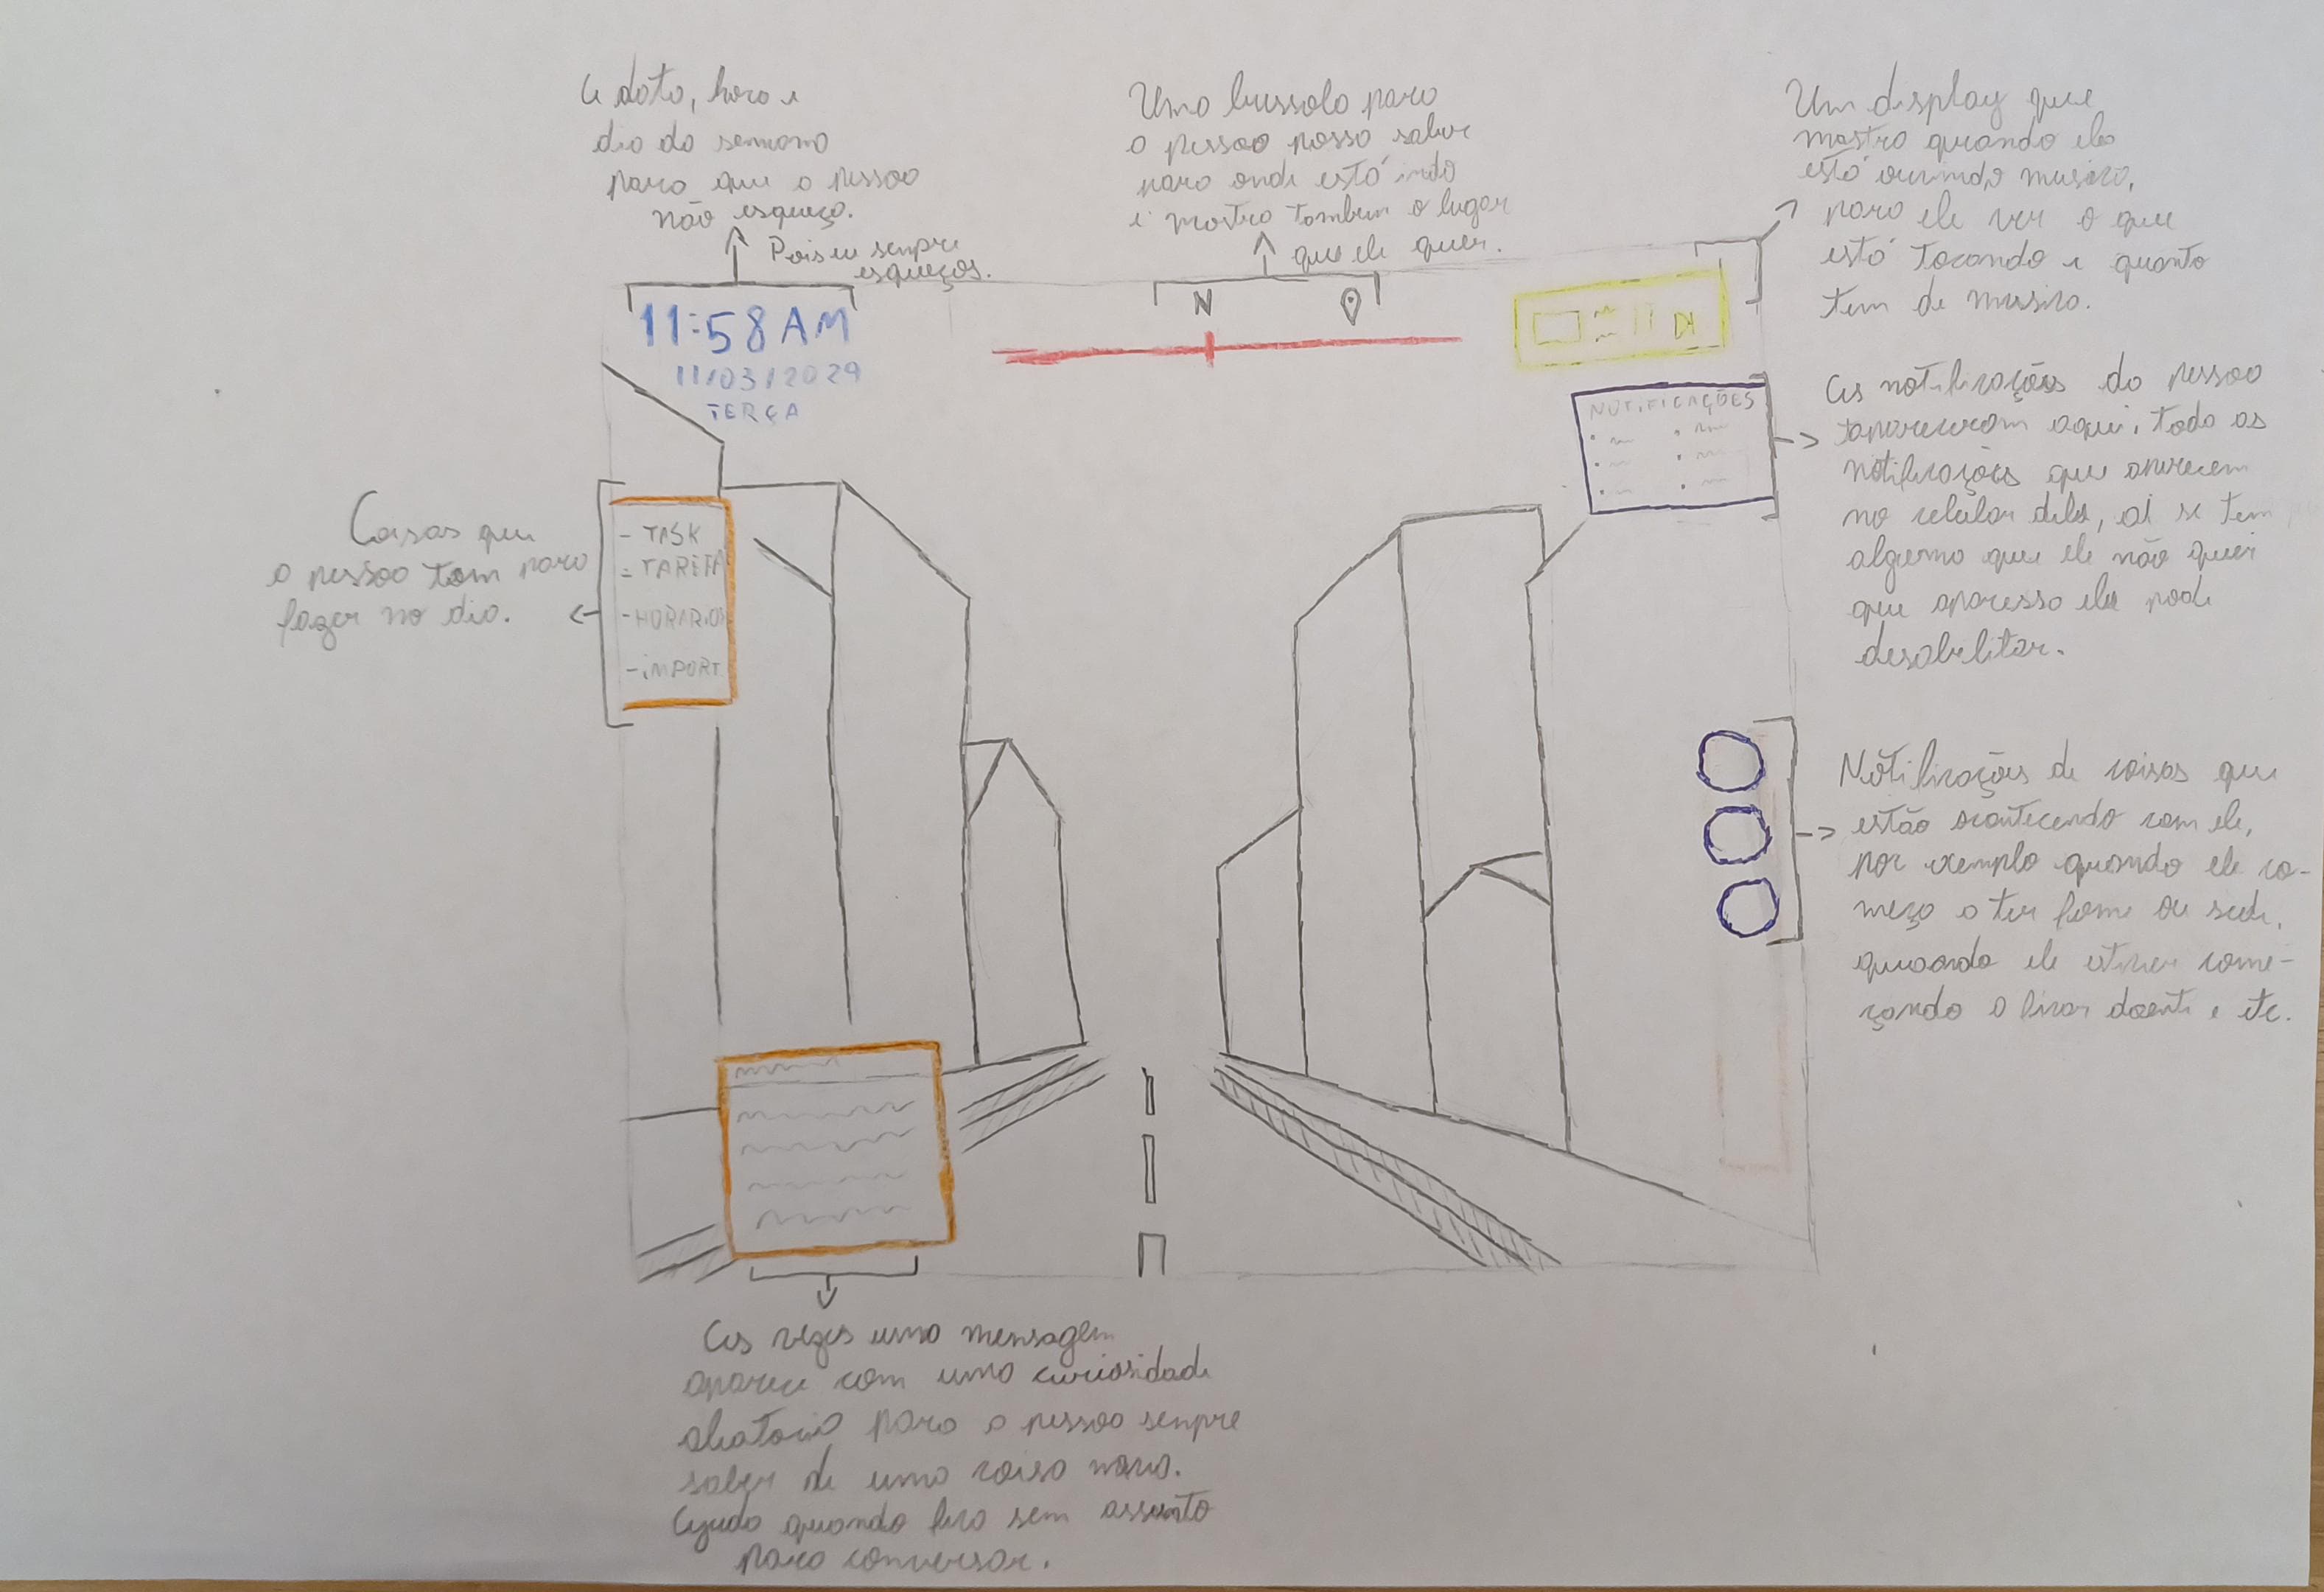 A data, hora e
dia da semana
para que a pessoa
não esqueça.
Pois eu senpre
esqueços.
11:58 AM
11/03/2029
TERÇA
Uma bussola para
a pessoa possa saber
para onde está indo
e mostra tambem o lugar
que ele quer.
N
Um display que
mostra quando ele
está ouvindo musica,
para ele ver o que
está tocando e quanto
tem de musica.
NOTIFICAÇÕES
As notificações da pessoa
apareceram aqui, toda as
notificações que aparecem
no celular dele, ai se tem
alguma que ele não quer
que aparessa ele pode
desabilitar.
Coisas que
a pessoa tem para
fazer no dia.
- TASK
- TAREFA
- HORARIOS
- IMPORT
Notificações de coisas que
estão acontecendo com ele,
por exemplo quando ele co-
meça a ter fome ou sede,
quando ele estiver come-
çando a ficar doente e etc.
As vezes uma mensagem
aparece com uma curiosidade
aleatoria para a pessoa senpre
saber de uma coisa nova.
Ajuda quando fico sem assunto
para conversar.